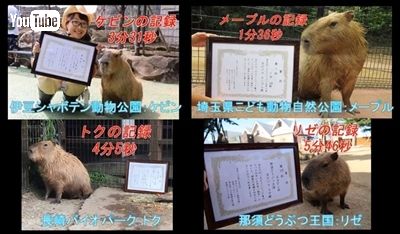 YouTube
ケビンの記録
3分31秒
伊豆シャボテン動物公園・ケビン
メープルの記録
1分36秒
埼玉県こども動物自然公園・メープル
トクの記録
4分5秒
長崎バイオパーク・トク
リゼの記録
5分46秒
那須どうぶつ王国・リゼ